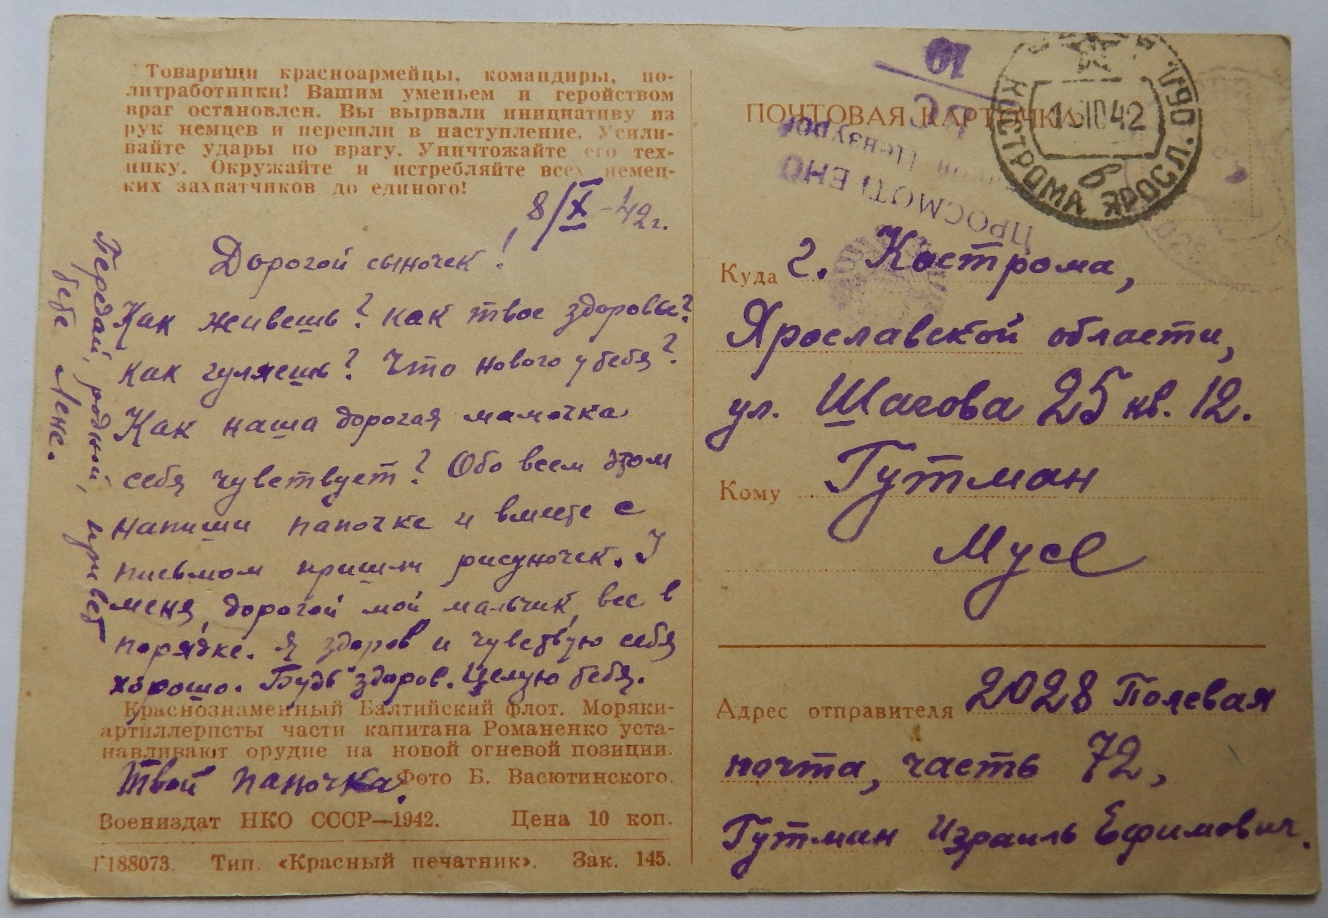 Товарищи красноармейцы, командиры, по-
литработники! Вашим уменьем и геройством
враг остановлен. Вы вырвали инициативу из
рук немцев и перешли в наступление. Усили-
вайте удары по врагу. Уничтожайте его тех-
нику. Окружайте и истребляйте всех немец-
ких захватчиков до единого!
8/X-42г.
Дорогой сыночек!
Как живешь? Как твое здоровье?
Как гуляешь? Что нового у тебя?
Как наша дорогая мамочка
себя чувствует? Обо всем этом
напиши папочке и вместе с
письмом пришли рисуночек. У
меня, дорогой мой мальчик, все в
порядке. Я здоров и чувствую себя
хорошо. Будь здоров. Целую тебя.
Твой папочка.
Передай, родной, привет
тете Лене.
Краснознаменный Балтийский флот. Моряки-
артиллеристы части капитана Романенко уста-
навливают орудие на новой огневой позиции.
Фото Б. Васютинского.
Воениздат НКО СССР—1942. Цена 10 коп.
Г188073. Тип. «Красный печатник». Зак. 145.
ПОЧТОВАЯ КАРТОЧКА
КОСТРОМА ЯРОСЛ. ОБЛ.
42
в
ПРОСМОТРЕНО
Цензурой
19
Куда г. Кострома,
Ярославской области,
ул. Шагова 25 кв. 12.
Кому Гутман
Мусе
Адрес отправителя 2028 Полевая
почта, часть 72,
Гутман Израиль Ефимович.